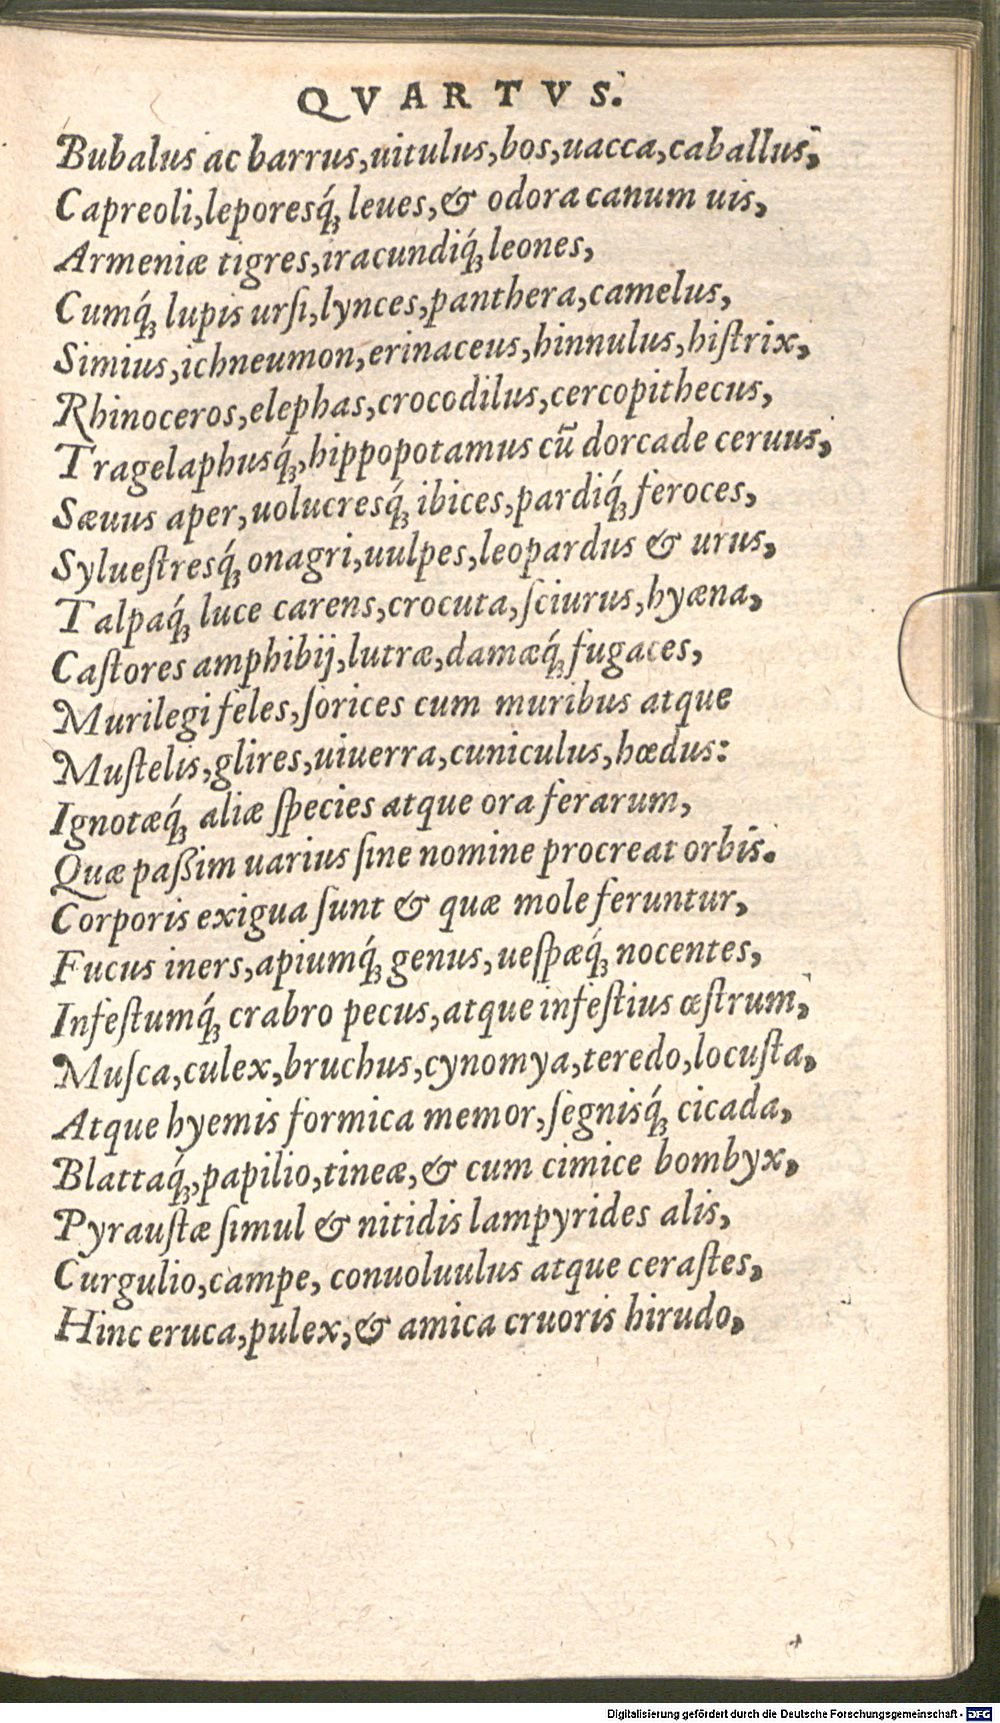 QVARTVS.
Bubalus ac barrus,uitulus,bos,uacca,caballus,
Capreoli,leporesq́ꝫ leues,& odora canum uis,
Armeniæ tigres,iracundiq́ꝫ leones,
Cumq́ꝫ lupis urſi,lynces,panthera,camelus,
Simius,ichneumon,erinaceus,hinnulus,hiſtrix,
Rhinoceros,elephas,crocodilus,cercopithecus,
Tragelaphusq́ꝫ,hippopotamus cū dorcade ceruus,
Sæuus aper,uolucresq́ꝫ ibices,pardiq́ꝫ feroces,
Sylueſtresq́ꝫ onagri,uulpes,leopardus & urus,
Talpaq́ꝫ luce carens,crocuta,ſciurus,hyæna,
Caſtores amphibij,lutræ,damæq́ꝫ fugaces,
Murilegi feles,ſorices cum muribus atque
Muſtelis,glires,uiuerra,cuniculus,hœdus:
Ignotæq́ꝫ aliæ ſpecies atque ora ferarum,
Quæ paßim uarius ſine nomine procreat orbis.
Corporis exigua ſunt & quæ mole feruntur,
Fucus iners,apiumq́ꝫ genus,ueſpæq́ꝫ nocentes,
Infeſtumq́ꝫ crabro pecus,atque infeſtius œſtrum,
Muſca,culex,bruchus,cynomya,teredo,locuſta,
Atque hyemis formica memor,ſegnisq́ꝫ cicada,
Blattaq́ꝫ,papilio,tineæ,& cum cimice bombyx,
Pyrauſtæ ſimul & nitidis lampyrides alis,
Curgulio,campe, conuoluulus atque ceraſtes,
Hinc eruca,pulex,& amica cruoris hirudo,
Digitalisierung gefördert durch die Deutsche Forschungsgemeinschaft - DFG